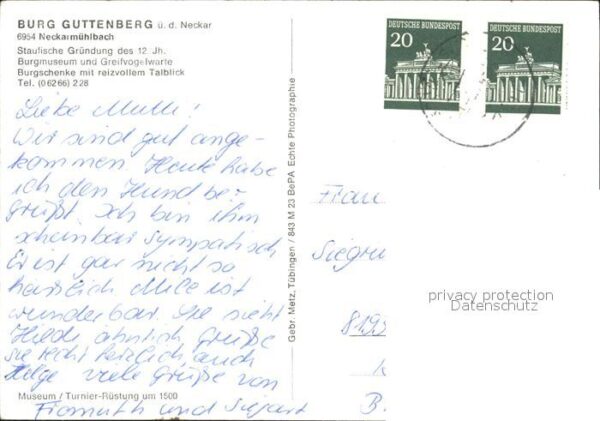 BURG GUTTENBERG ü. d. Neckar
6954 Neckarmühlbach
Staufische Gründung des 12. Jh.
Burgmuseum und Greifvogelwarte
Burgschenke mit reizvollem Talblick
Tel. (06266) 228
Liebe Mutti!
Wir sind gut ange-
kommen. Heute habe
ich den Hund be-
grüßt. Ich bin ihm
scheinbar sympatisch
Er ist gar nicht so
hässlich ist
wunderbar. Sie sieht
Hilde ähnlich Grüße
sie recht herzlich auch
Helge viele Grüße von
und
Museum / Turnier-Rüstung um 1500
Gebr. Metz, Tübingen / 843 M 23 BePA Echte Photographie
DEUTSCHE BUNDESPOST
20
DEUTSCHE BUNDESPOST
20
Frau
Siegru
819
B.
privacy protection
Datenschutz